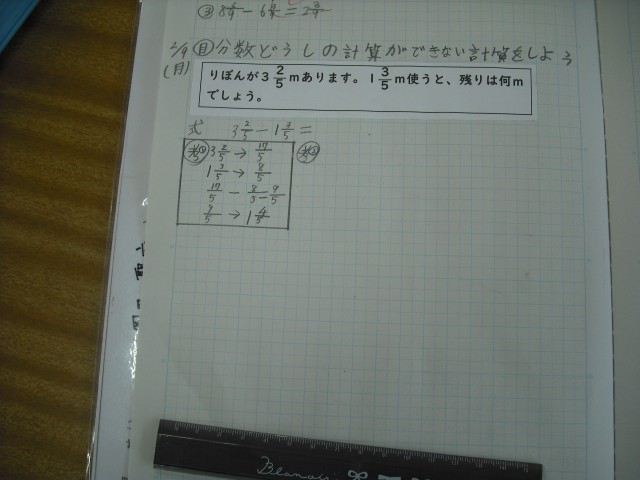 ③ 8 5/9 - 6 2/9 = 2 3/9
2/9 (月) 目 分数どうしの計算ができない計算をしよう
りぼんが3 2/5 mあります。1 3/5 m使うと、残りは何m
でしょう。
式 3 2/5 - 1 3/5 =
考① 3 2/5 → 17/5 考②
1 3/5 → 8/5
17/5 - 8/5 = 9/5
9/5 → 1 4/5
Blanair